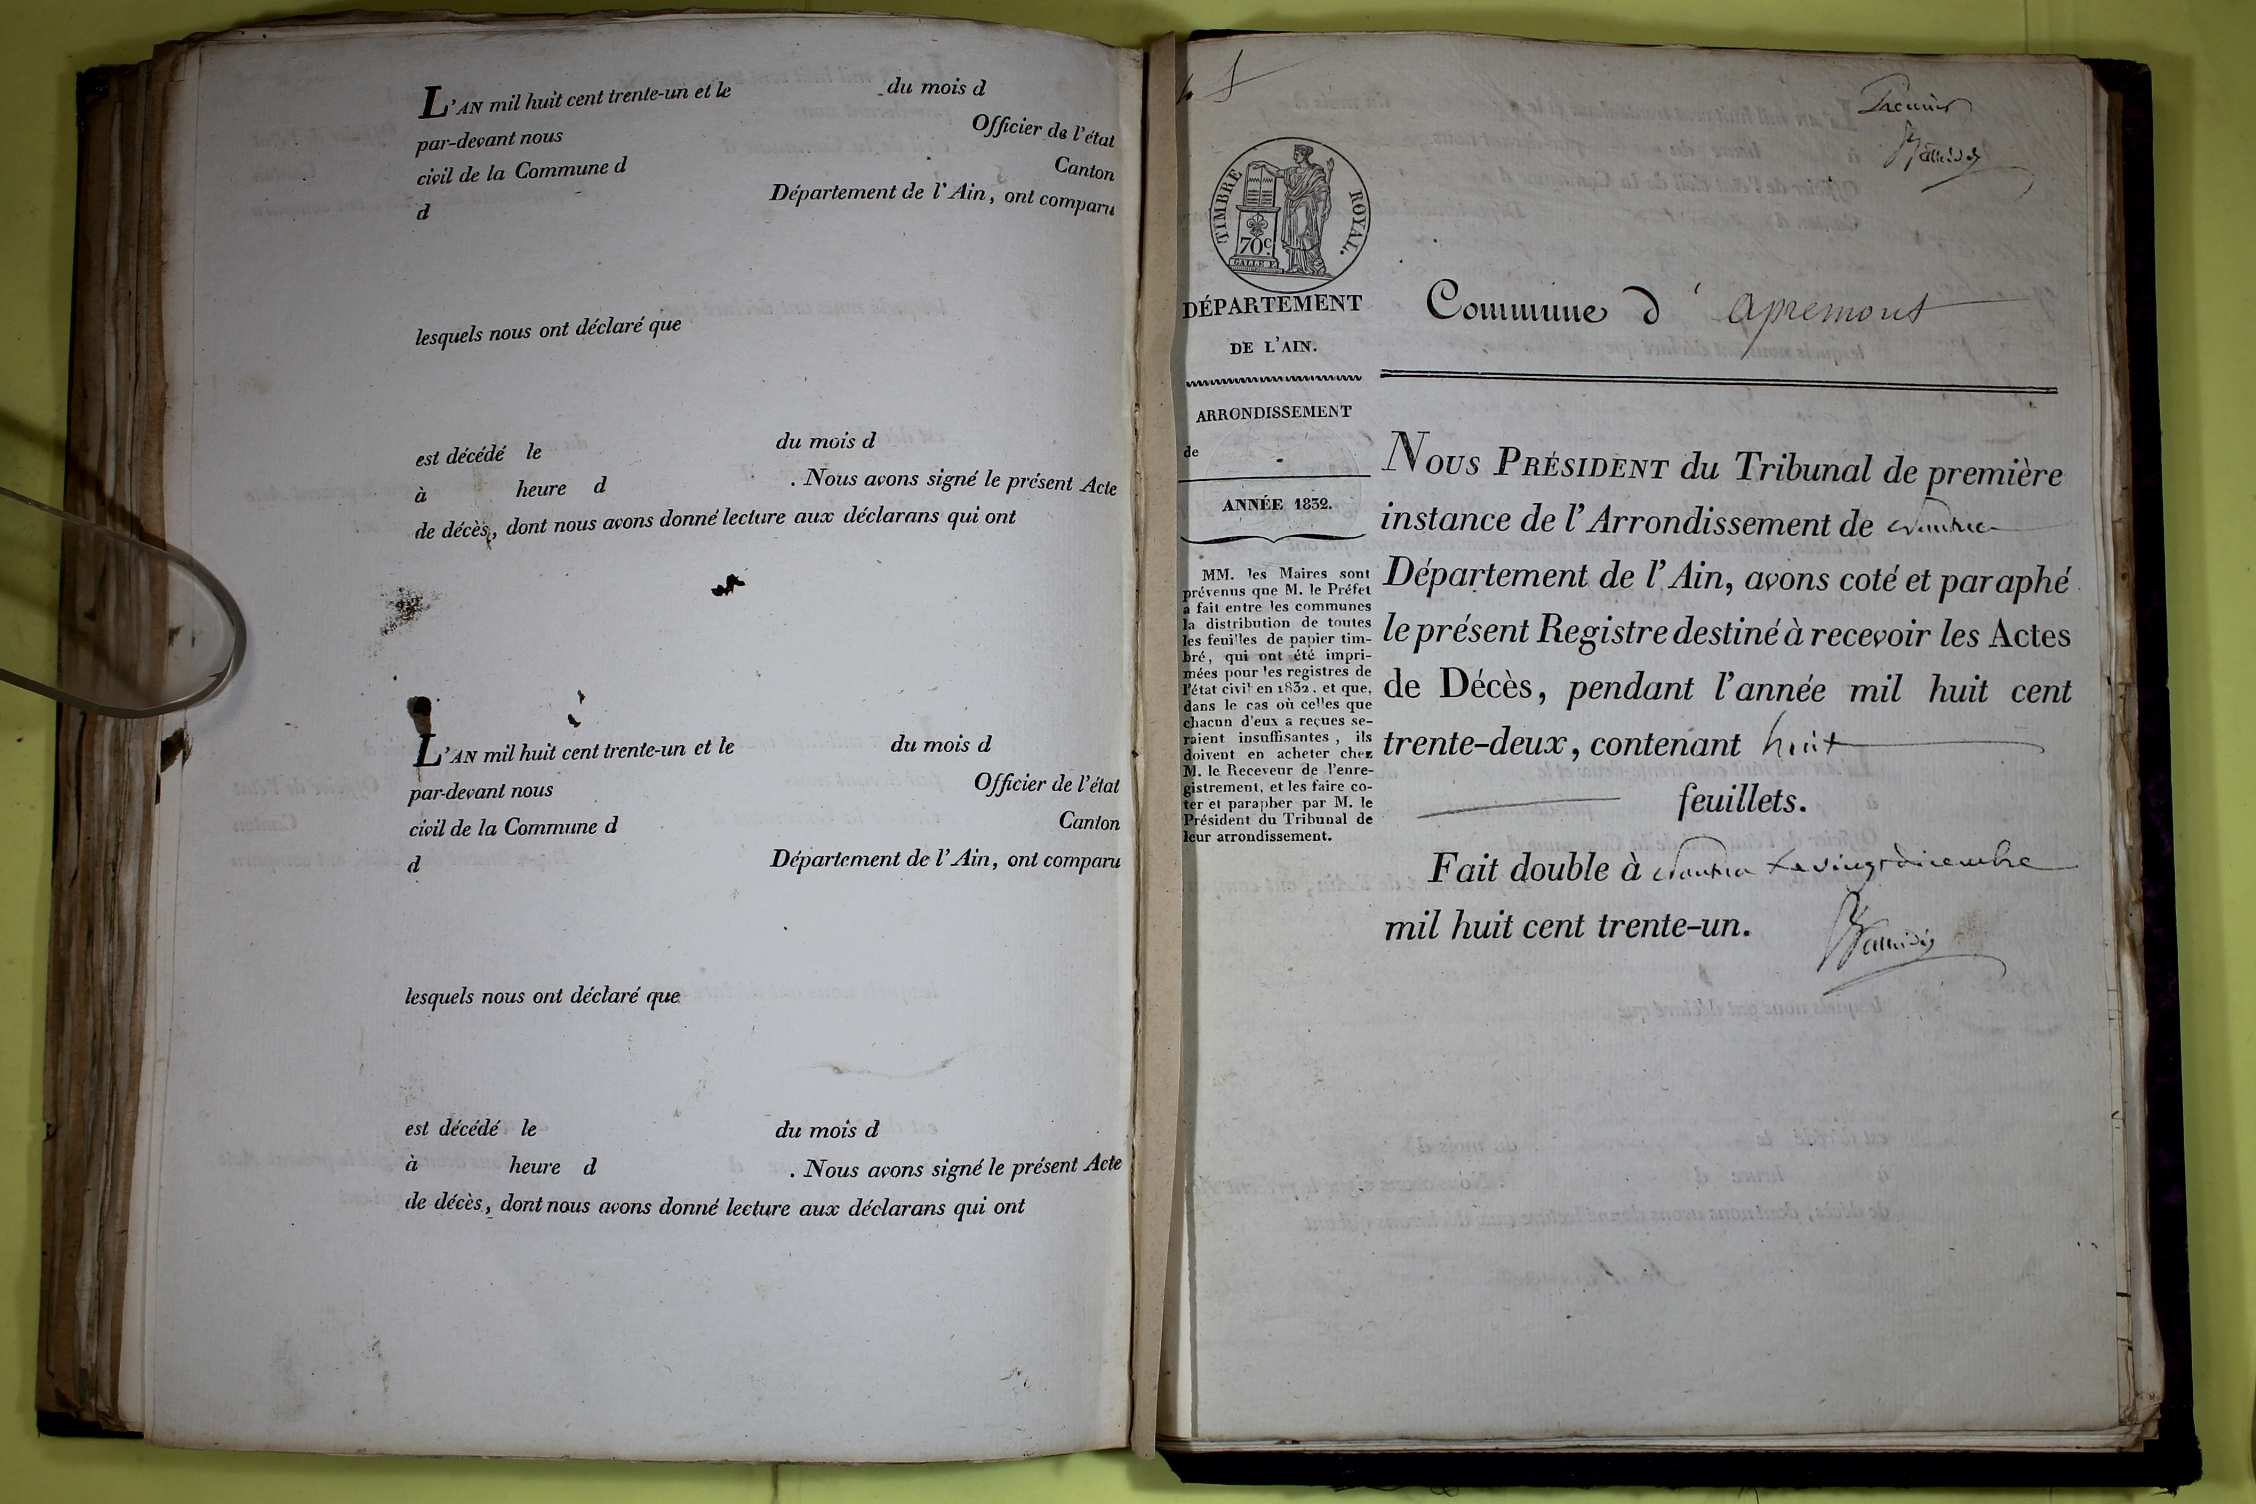 L'AN mil huit cent trente-un et le du mois d
par-devant nous Officier de l'état
civil de la Commune d Canton
d Département de l'Ain, ont comparu
lesquels nous ont déclaré que
est décédé le du mois d
à heure d . Nous avons signé le présent Acte
de décès, dont nous avons donné lecture aux déclarans qui ont
L'AN mil huit cent trente-un et le du mois d
par-devant nous Officier de l'état
civil de la Commune d Canton
d Département de l'Ain, ont comparu
lesquels nous ont déclaré que
est décédé le du mois d
à heure d . Nous avons signé le présent Acte
de décès, dont nous avons donné lecture aux déclarans qui ont
TIMBRE ROYAL.
70 c.
DÉPARTEMENT
DE L'AIN.
ARRONDISSEMENT
de
ANNÉE 1832.
MM. les Maires sont
prévenus que M. le Préfet
a fait entre les communes
la distribution de toutes
les feuilles de papier tim-
bré, qui ont été impri-
mées pour les registres de
l'état civil en 1832, et que,
dans le cas où celles que
chacun d'eux a reçues se-
raient insuffisantes, ils
doivent en acheter chez
M. le Receveur de l'enre-
gistrement, et les faire co-
ter et parapher par M. le
Président du Tribunal de
leur arrondissement.
Premier
Commune d' apremont
NOUS PRÉSIDENT du Tribunal de première
instance de l'Arrondissement de nantua
Département de l'Ain, avons coté et paraphé
le présent Registre destiné à recevoir les Actes
de Décès, pendant l'année mil huit cent
trente-deux, contenant huit
feuillets.
Fait double à nantua le vingt décembre
mil huit cent trente-un.